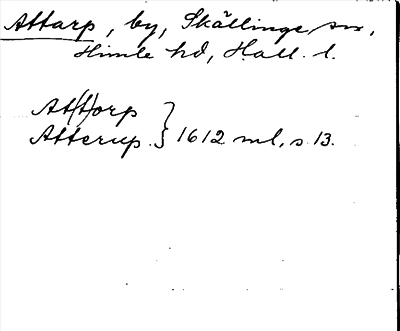 Attarp, by, Skällinge sn,
Himle hd, Hall. l.
At(t)orp
Atterup } 1612 ml, s 13.